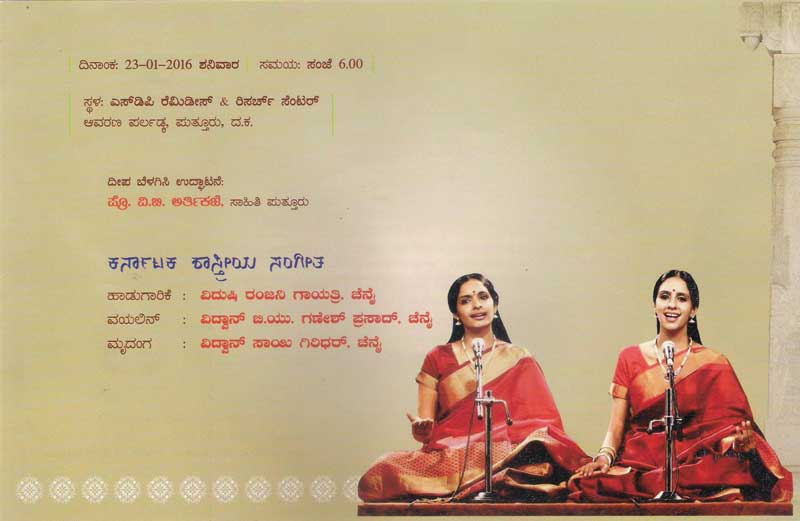 ದಿನಾಂಕ: 23-01-2016 ಶನಿವಾರ | ಸಮಯ: ಸಂಜೆ 6.00
ಸ್ಥಳ: ಎಸ್‌ಡಿಪಿ ರೆಮಿಡೀಸ್ & ರಿಸರ್ಚ್ ಸೆಂಟರ್
ಆವರಣ ಪರ್ಲಡ್ಕ, ಪುತ್ತೂರು, ದ.ಕ.
ದೀಪ ಬೆಳಗಿಸಿ ಉದ್ಘಾಟನೆ:
ಪ್ರೊ. ವಿ.ಬಿ. ಅರ್ತಿಕಜೆ, ಸಾಹಿತಿ ಪುತ್ತೂರು
ಕರ್ನಾಟಕ ಶಾಸ್ತ್ರೀಯ ಸಂಗೀತ
ಹಾಡುಗಾರಿಕೆ : ವಿದುಷಿ ರಂಜನಿ ಗಾಯತ್ರಿ, ಚೆನ್ನೈ
ವಯಲಿನ್ : ವಿದ್ವಾನ್ ಬಿ.ಯು. ಗಣೇಶ್ ಪ್ರಸಾದ್, ಚೆನ್ನೈ
ಮೃದಂಗ : ವಿದ್ವಾನ್ ಸಾಯಿ ಗಿರಿಧರ್, ಚೆನ್ನೈ